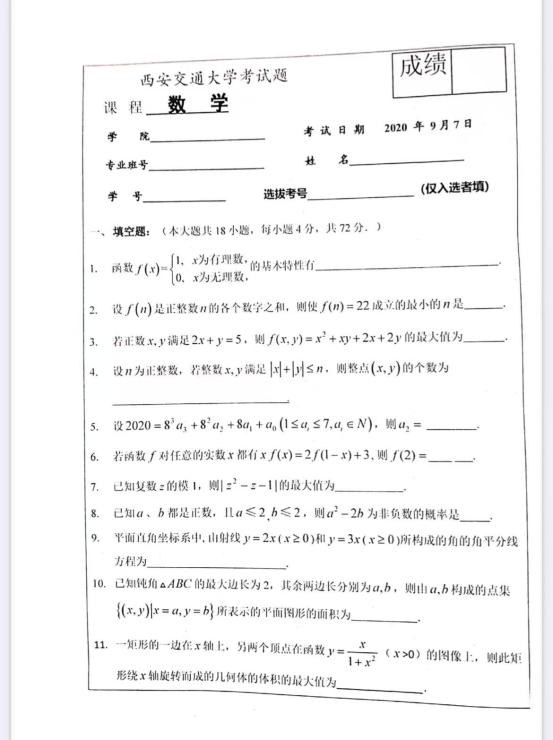 西安交通大学考试题
成绩
课 程 数 学
学 院
考 试 日 期 2020 年 9 月 7 日
专业班号
姓 名
学 号
选拔考号 (仅入选者填)
一、填空题:(本大题共 18 小题,每小题 4 分,共 72 分.)
1. 函数 f(x)={1, x为有理数, 0, x为无理数, 的基本特性有________.
2. 设 f(n) 是正整数 n 的各个数字之和,则使 f(n)=22 成立的最小的 n 是____.
3. 若正数 x, y 满足 2x+y=5,则 f(x,y)=x²+xy+2x+2y 的最大值为____.
4. 设 n 为正整数,若整数 x, y 满足 |x|+|y|≤n,则整点(x,y)的个数为
________.
5. 设 2020=8³a₃+8²a₂+8a₁+a₀ (1≤aᵢ≤7, aᵢ∈N),则 a₂=____.
6. 若函数 f 对任意的实数 x 都有 x f(x)=2f(1-x)+3,则 f(2)=____.
7. 已知复数 z 的模 1,则|z²-z-1|的最大值为____.
8. 已知 a、b 都是正数,且 a≤2,b≤2,则 a²-2b 为非负数的概率是____.
9. 平面直角坐标系中,由射线 y=2x(x≥0)和 y=3x(x≥0)所构成的角的角平分线
方程为________.
10. 已知钝角△ABC 的最大边长为 2,其余两边长分别为 a,b,则由 a,b 构成的点集
{(x,y)|x=a,y=b} 所表示的平面图形的面积为____.
11. 一矩形的一边在 x 轴上,另两个顶点在函数 y=x/(1+x²) (x>0)的图像上,则此矩
形绕 x 轴旋转而成的几何体的体积的最大值为________.